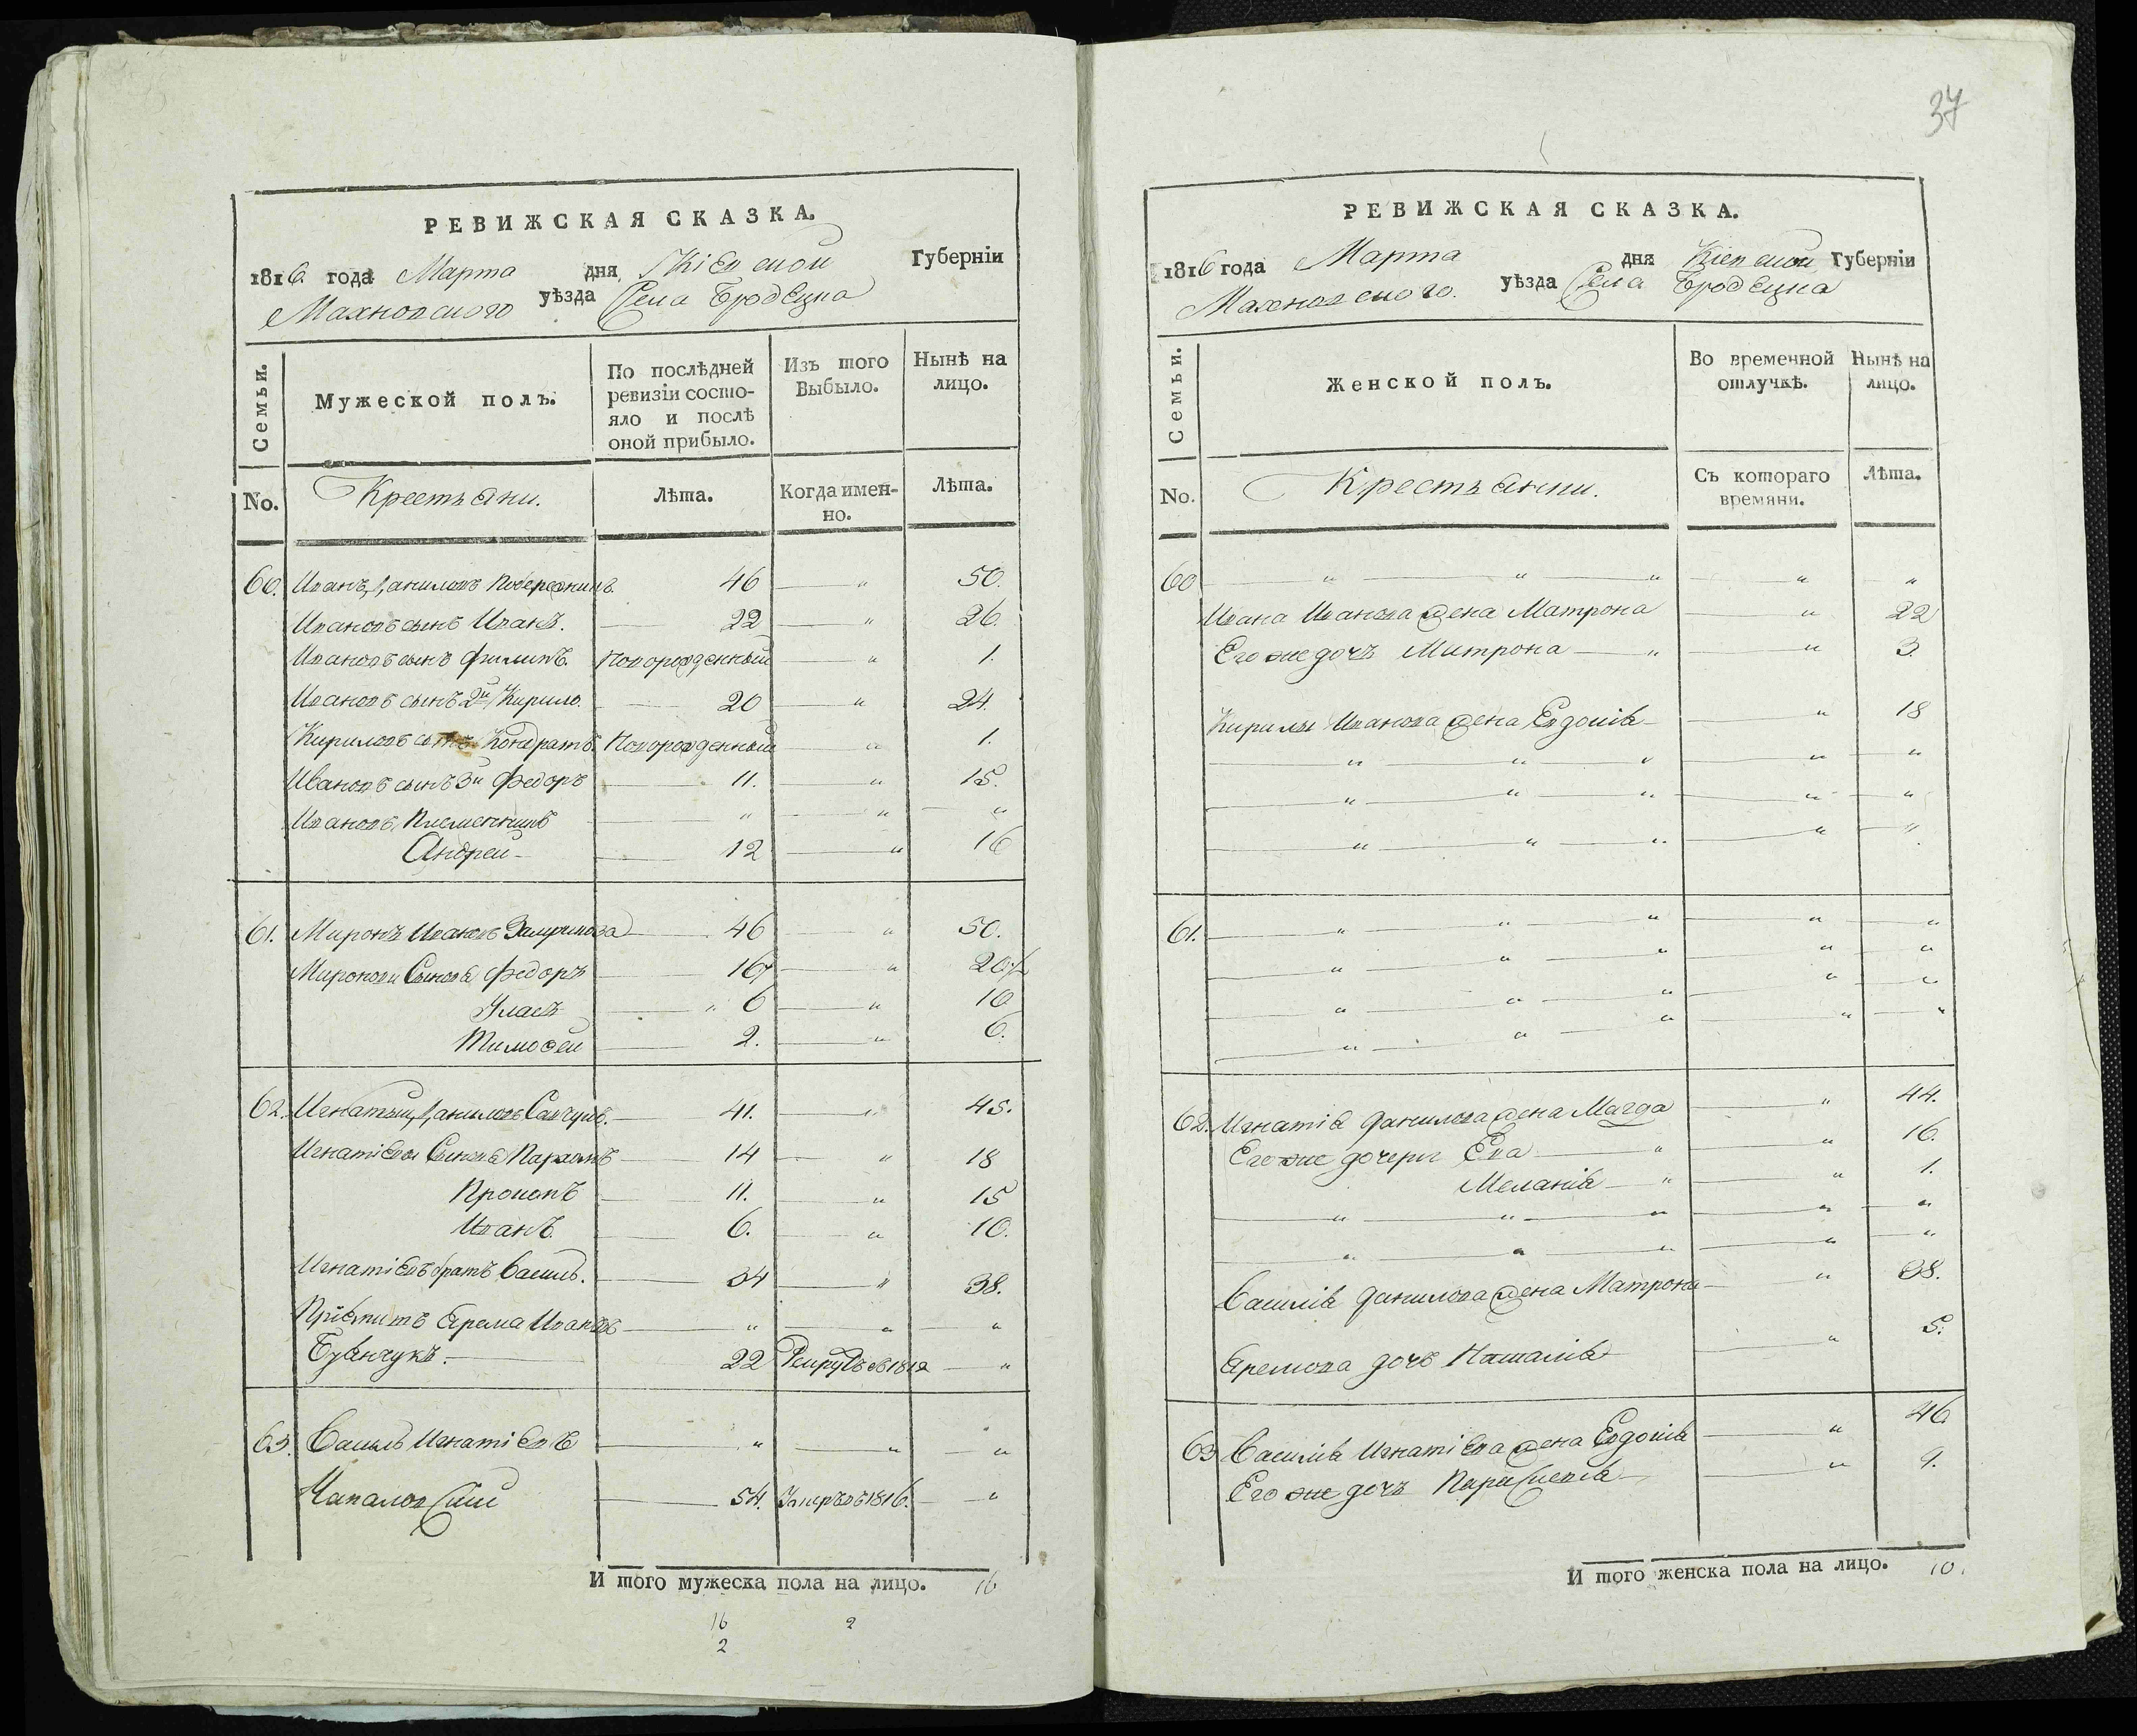 37
РЕВИЖСКАЯ СКАЗКА.
1816 года Марта дня Кіевской Губерніи
Махновского уѣзда Села Бродецка
Семьи.
Мужеской полъ.
По послѣдней ревизіи состояло и послѣ оной прибыло.
Изъ того Выбыло.
Нынѣ на лицо.
No. Крестьяни. Лѣта. Когда именно. Лѣта.
60. Иванъ Даниловъ Побережникъ 46 „ 50.
Ивановъ сынъ Иванъ. 22 „ 26.
Ивановъ сынъ Филипъ. Новорожденный „ 1.
Ивановъ сынъ 2й Кирило. 20 „ 24.
Кириловъ сынъ Кондратъ. Новорожденный „ 1.
Ивановъ сынъ 3й Федоръ 11. „ 15.
Ивановъ Племенникъ „ „ „
Андрей 12 „ 16
61. Миронъ Ивановъ 46 „ 50.
Миронови Сынова Федоръ 16 „ 20
Уласъ 6 „ 10
Тимофей 2. „ 6.
62. Игнатый Даниловъ Савчукъ. 41. „ 45.
Игнатіеви Сынова Пархомъ 14 „ 18
Прокопъ 11. „ 15
Иванъ 6. „ 10.
Игнатіевъ братъ Василь. 34 „ 38.
Ярема Ивановъ „ „ „
22 Рекрутъ въ 1812 „
63. Василь Игнатіевъ „ „ „
Чапаловскій 54. Умеръ въ 1816. „
И того мужеска пола на лицо. 16
16 2
2
РЕВИЖСКАЯ СКАЗКА.
1816 года Марта дня Кіевской Губерніи
Махновского. уѣзда Села Бродецка
Семьи.
Женской полъ.
Во временной отлучкѣ.
Нынѣ на лицо.
No. Крестьянки. Съ котораго времяни. Лѣта.
60 „ „ „ „ „
Ивана Иванова жена Матрона „ 22
Его же дочъ Матрона „ „ 3.
Кирилы Иванова жена Евдокія „ 18
„ „ „ „ „
„ „ „ „ „
„ „ „ „ „
61. „ „ „ „ „
„ „ „ „ „
„ „ „ „ „
„ „ „ „ „
62. Игнатія Данилова жена Магда „ 44.
Его же дочери Ева „ „ 16.
Меланія „ „ 1.
„ „ „ „ „
„ „ „ „ „
Василія Данилова жена Матрона „ 38.
Яремова дочъ Наталія „ 5.
63 Василія Игнатіева жена Евдокія „ 46
Его же дочъ Параскевія „ 9.
И того женска пола на лицо. 10.